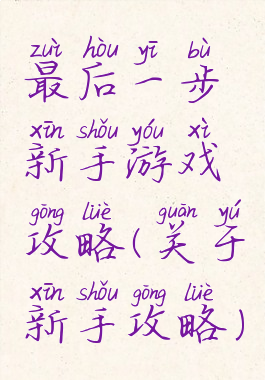 zuì hòu yī bù
最后一步
xīn shǒu yóu xì
新手游戏
gōng lüè guān yú
攻略(关于
xīn shǒu gōng lüè
新手攻略)